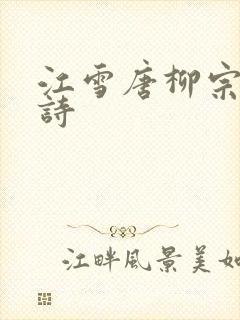 江雪唐柳宗
詩
江畔風景美如